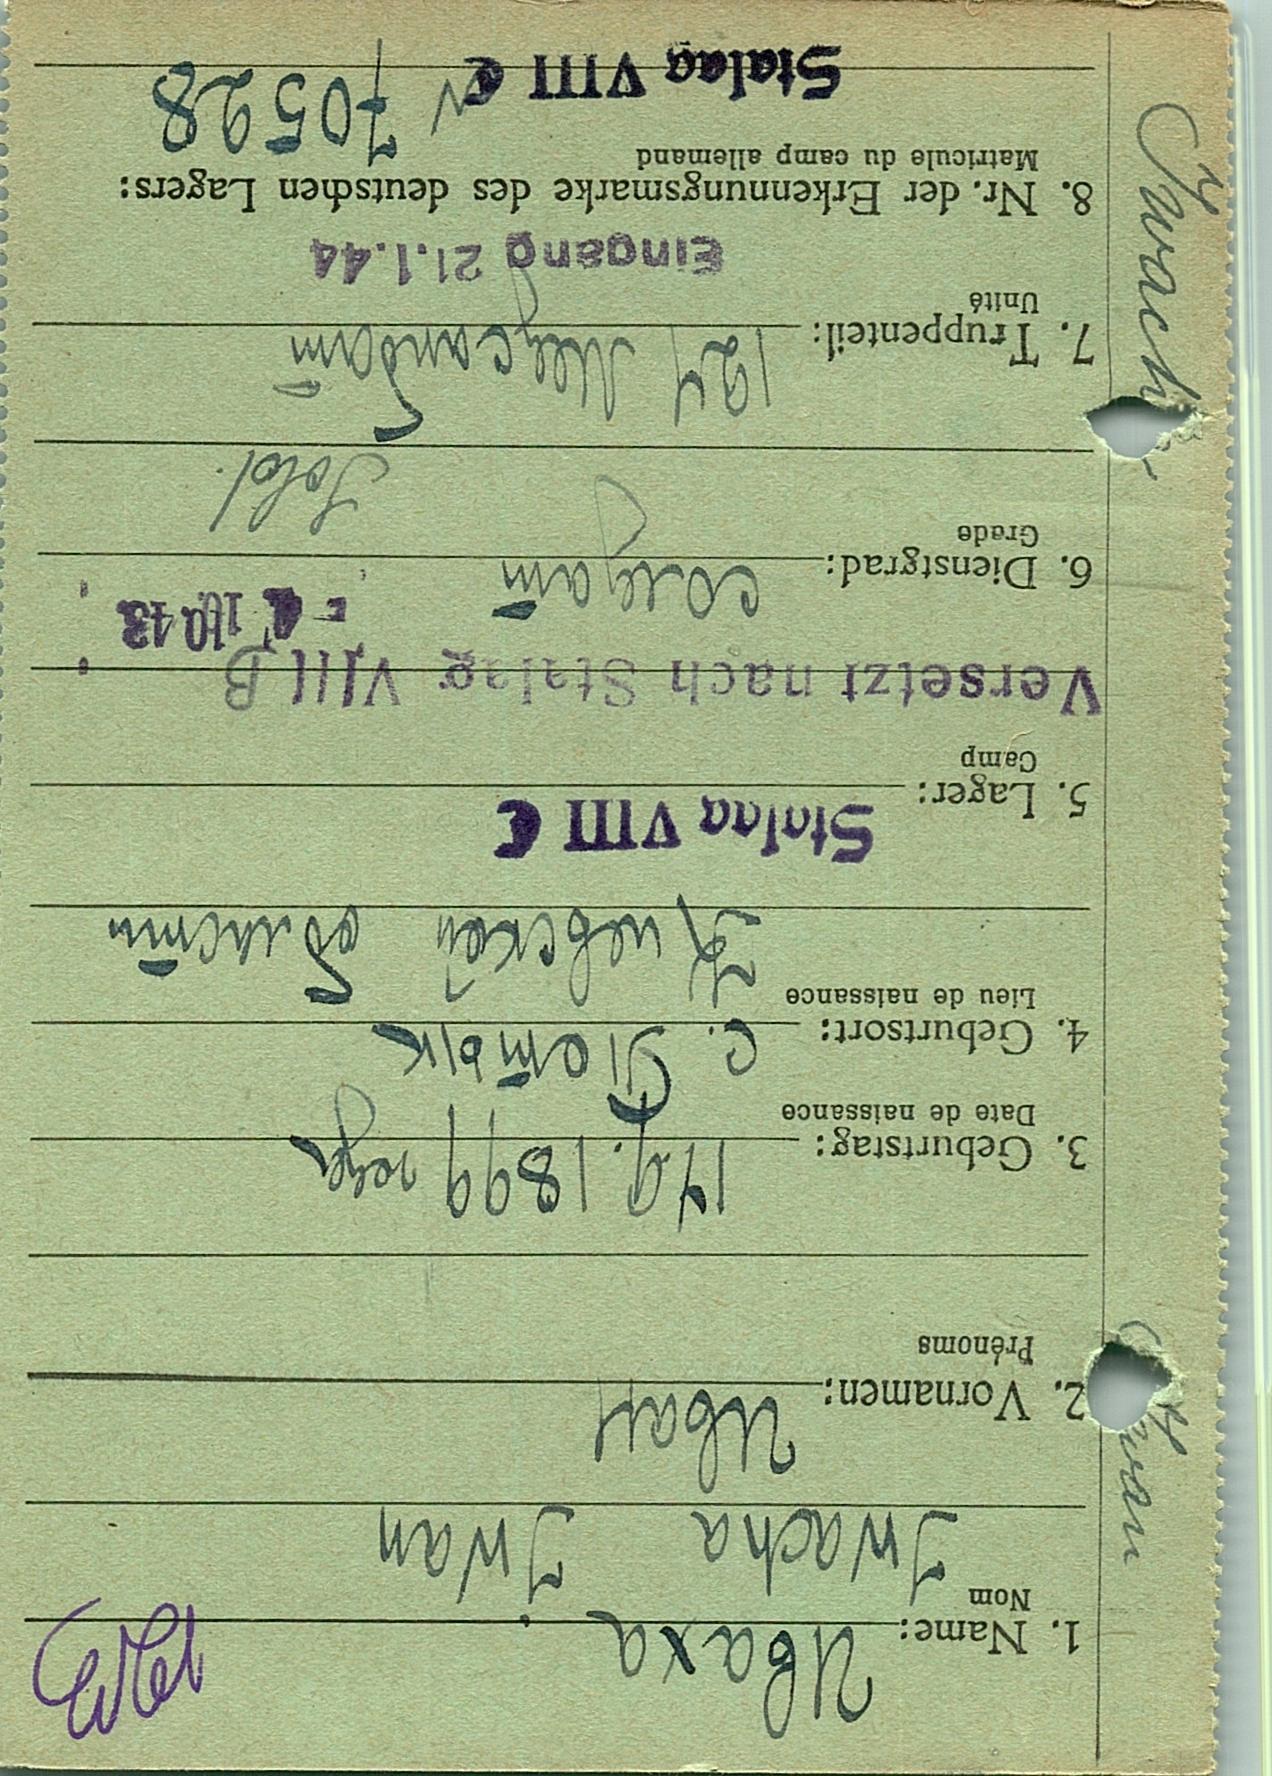 1. Name: Иваха
Nom
Jwacha Jwan
2. Vornamen: Иван
Prénoms
3. Geburtstag: 17.9.1899 года
Date de naissance
4. Geburtsort: с.
Lieu de naissance
Киевской области
Stalag VIII C
5. Lager:
Camp
Versetzt nach Stalag VIII B
10.43
6. Dienstgrad: солдат
Grade
Sold.
7. Truppenteil: 127 Медсанбат
Unité
Eingang 21.1.44
8. Nr. der Erkennungsmarke des deutschen Lagers:
Matricule du camp allemand
70528
Stalag VIII C
Jwacha
Jwan